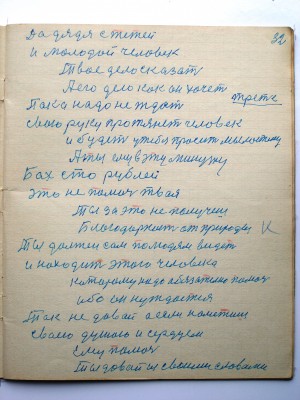 32
да дядя с тетей
и молодой человек
Твое дело сказат
А его дело как он хочет
трете
Пока надо не ждат
свою руку протянет человек
и будет у тебя просит милостину
А ты ему эту минуту
Бах сто рублей
это не помоч твая
Ты за это не получеш
Благодарност от природы К
Ты должен сам по людям видет
и находит этого человека
каторому надо обязательно помоч
ибо он нуждается
Так не давай а сам
своею душою и сердцем
ему помоч
Ты давай и своими словами